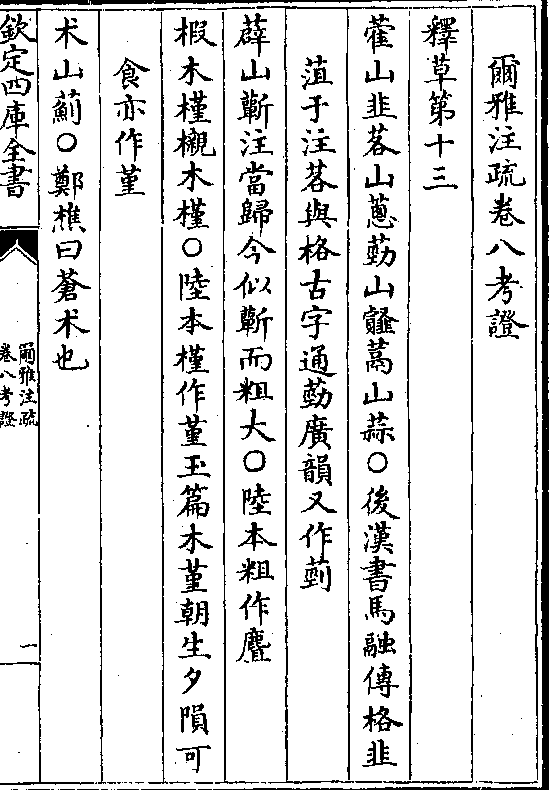 爾雅注疏卷八考證
釋草第十三
藿山韭茖山蔥葝山䪥蒚山蒜○後漢書馬融傳格韭
菹于注茖與格古字通葝廣韻又作𦵞
薜山蘄注當歸今似蘄而粗大○陸本粗作麆
椵木槿櫬木槿○陸本槿作堇玉篇木堇朝生夕隕可
食亦作堇
术山薊○鄭樵曰蒼术也
欽定四庫全書
爾雅注疏
卷八考證
一